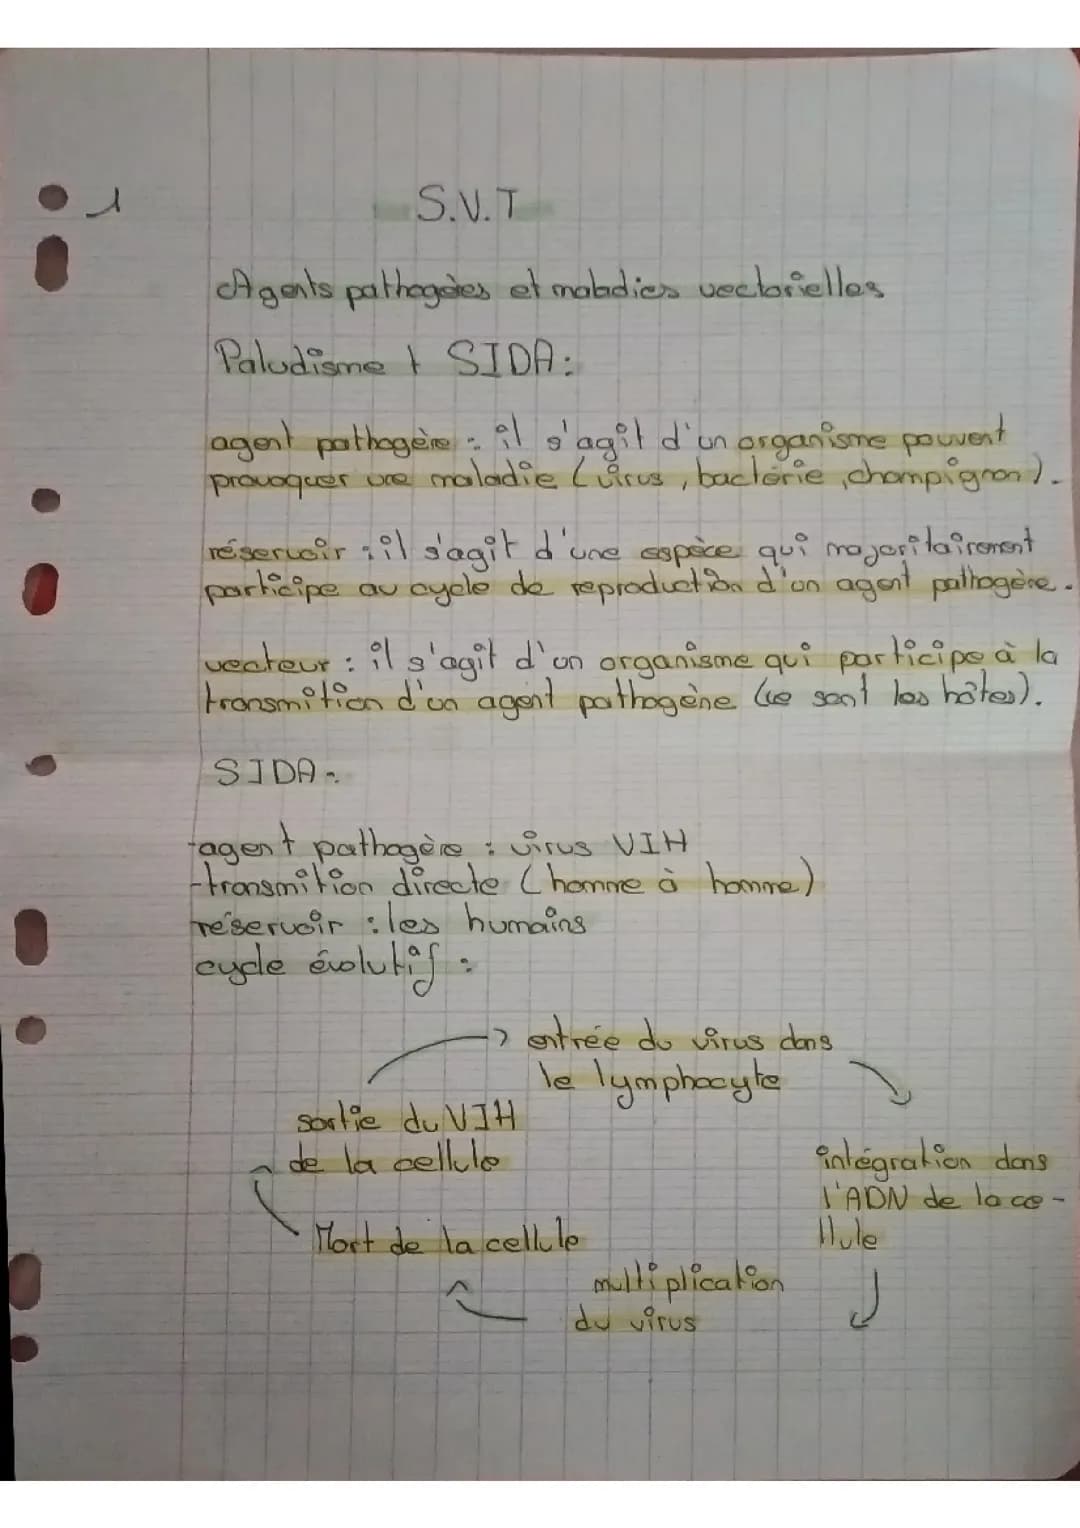 1
S.V.T
Agents pathogènes et maladies vectorielles
Paludisme + SIDA :
agent pathogène : il s'agit d'un organisme pouvent
provoquer une maladie (virus, bactérie, champignon).
réservoir : il s'agit d'une espèce qui majoritairement
participe au cycle de reproduction d'un agent pathogène.
vecteur : il s'agit d'un organisme qui participe à la
transmition d'un agent pathogène (ce sont les hôtes).
SIDA :
-agent pathogène : virus VIH
-transmition directe (homme à homme)
réservoir : les humains
cycle évolutif :
entrée du virus dans
le lymphocyte
sortie du VIH
de la cellule
intégration dans
l'ADN de la ce-
llule
Mort de la cellule
multiplication
du virus